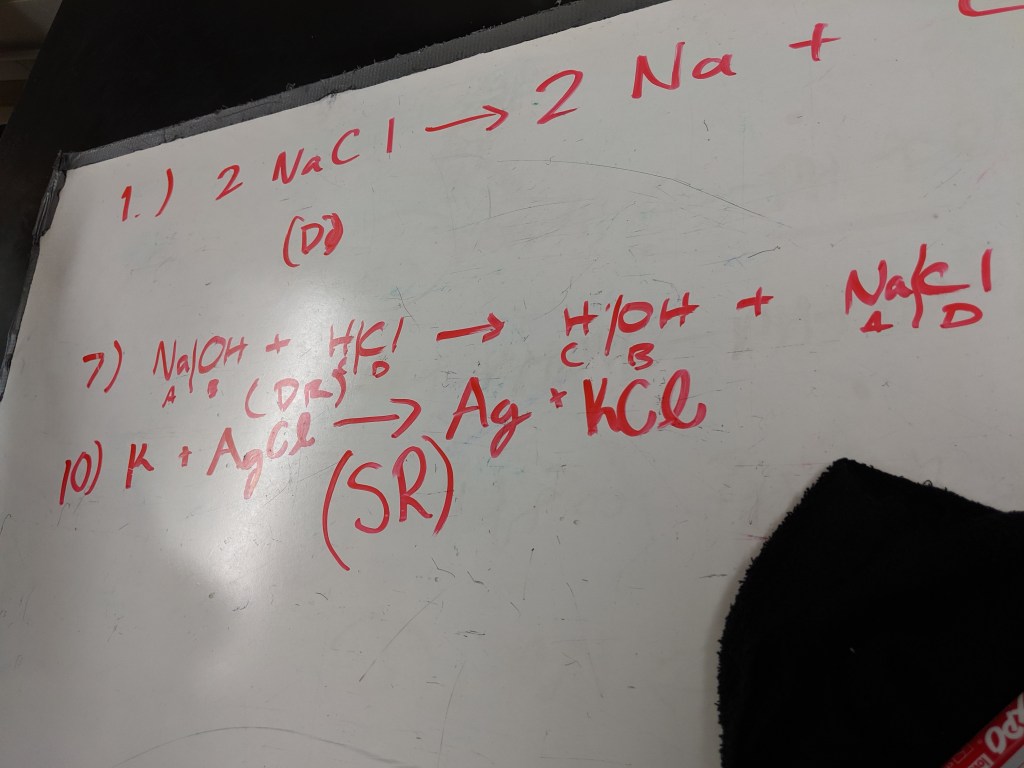 1.) 2 NaCl → 2 Na +
(D)
7) Na/OH + H/Cl → H/OH + Na/Cl
A B (DR) D C B A D
10) K + AgCl → Ag + KCl
(SR)